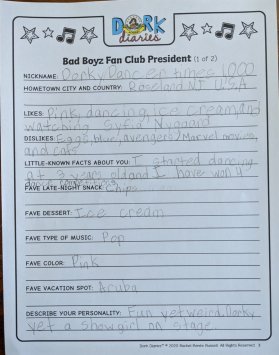 DORK
diaries
Bad Boyz Fan Club President (1 of 2)
NICKNAME: Dorky Dancer times 1,000
HOMETOWN CITY AND COUNTRY: Roseland NJ U.S.A
LIKES: Pink, dancing, Ice cream and
watching Sofia Nygaard
DISLIKES: Eggs, blue, avengers/Marvel movies,
and cats
LITTLE-KNOWN FACTS ABOUT YOU: I started dancing
at 3 years old and I have won 4
FAVE LATE-NIGHT SNACK: Chips
FAVE DESSERT: Ice cream
FAVE TYPE OF MUSIC: Pop
FAVE COLOR: Pink
FAVE VACATION SPOT: Aruba
DESCRIBE YOUR PERSONALITY: Fun yet weird. Dorky
yet a showgirl on stage.
Dork Diaries™ © 2020 Rachel Renée Russell. All Rights Reserved.